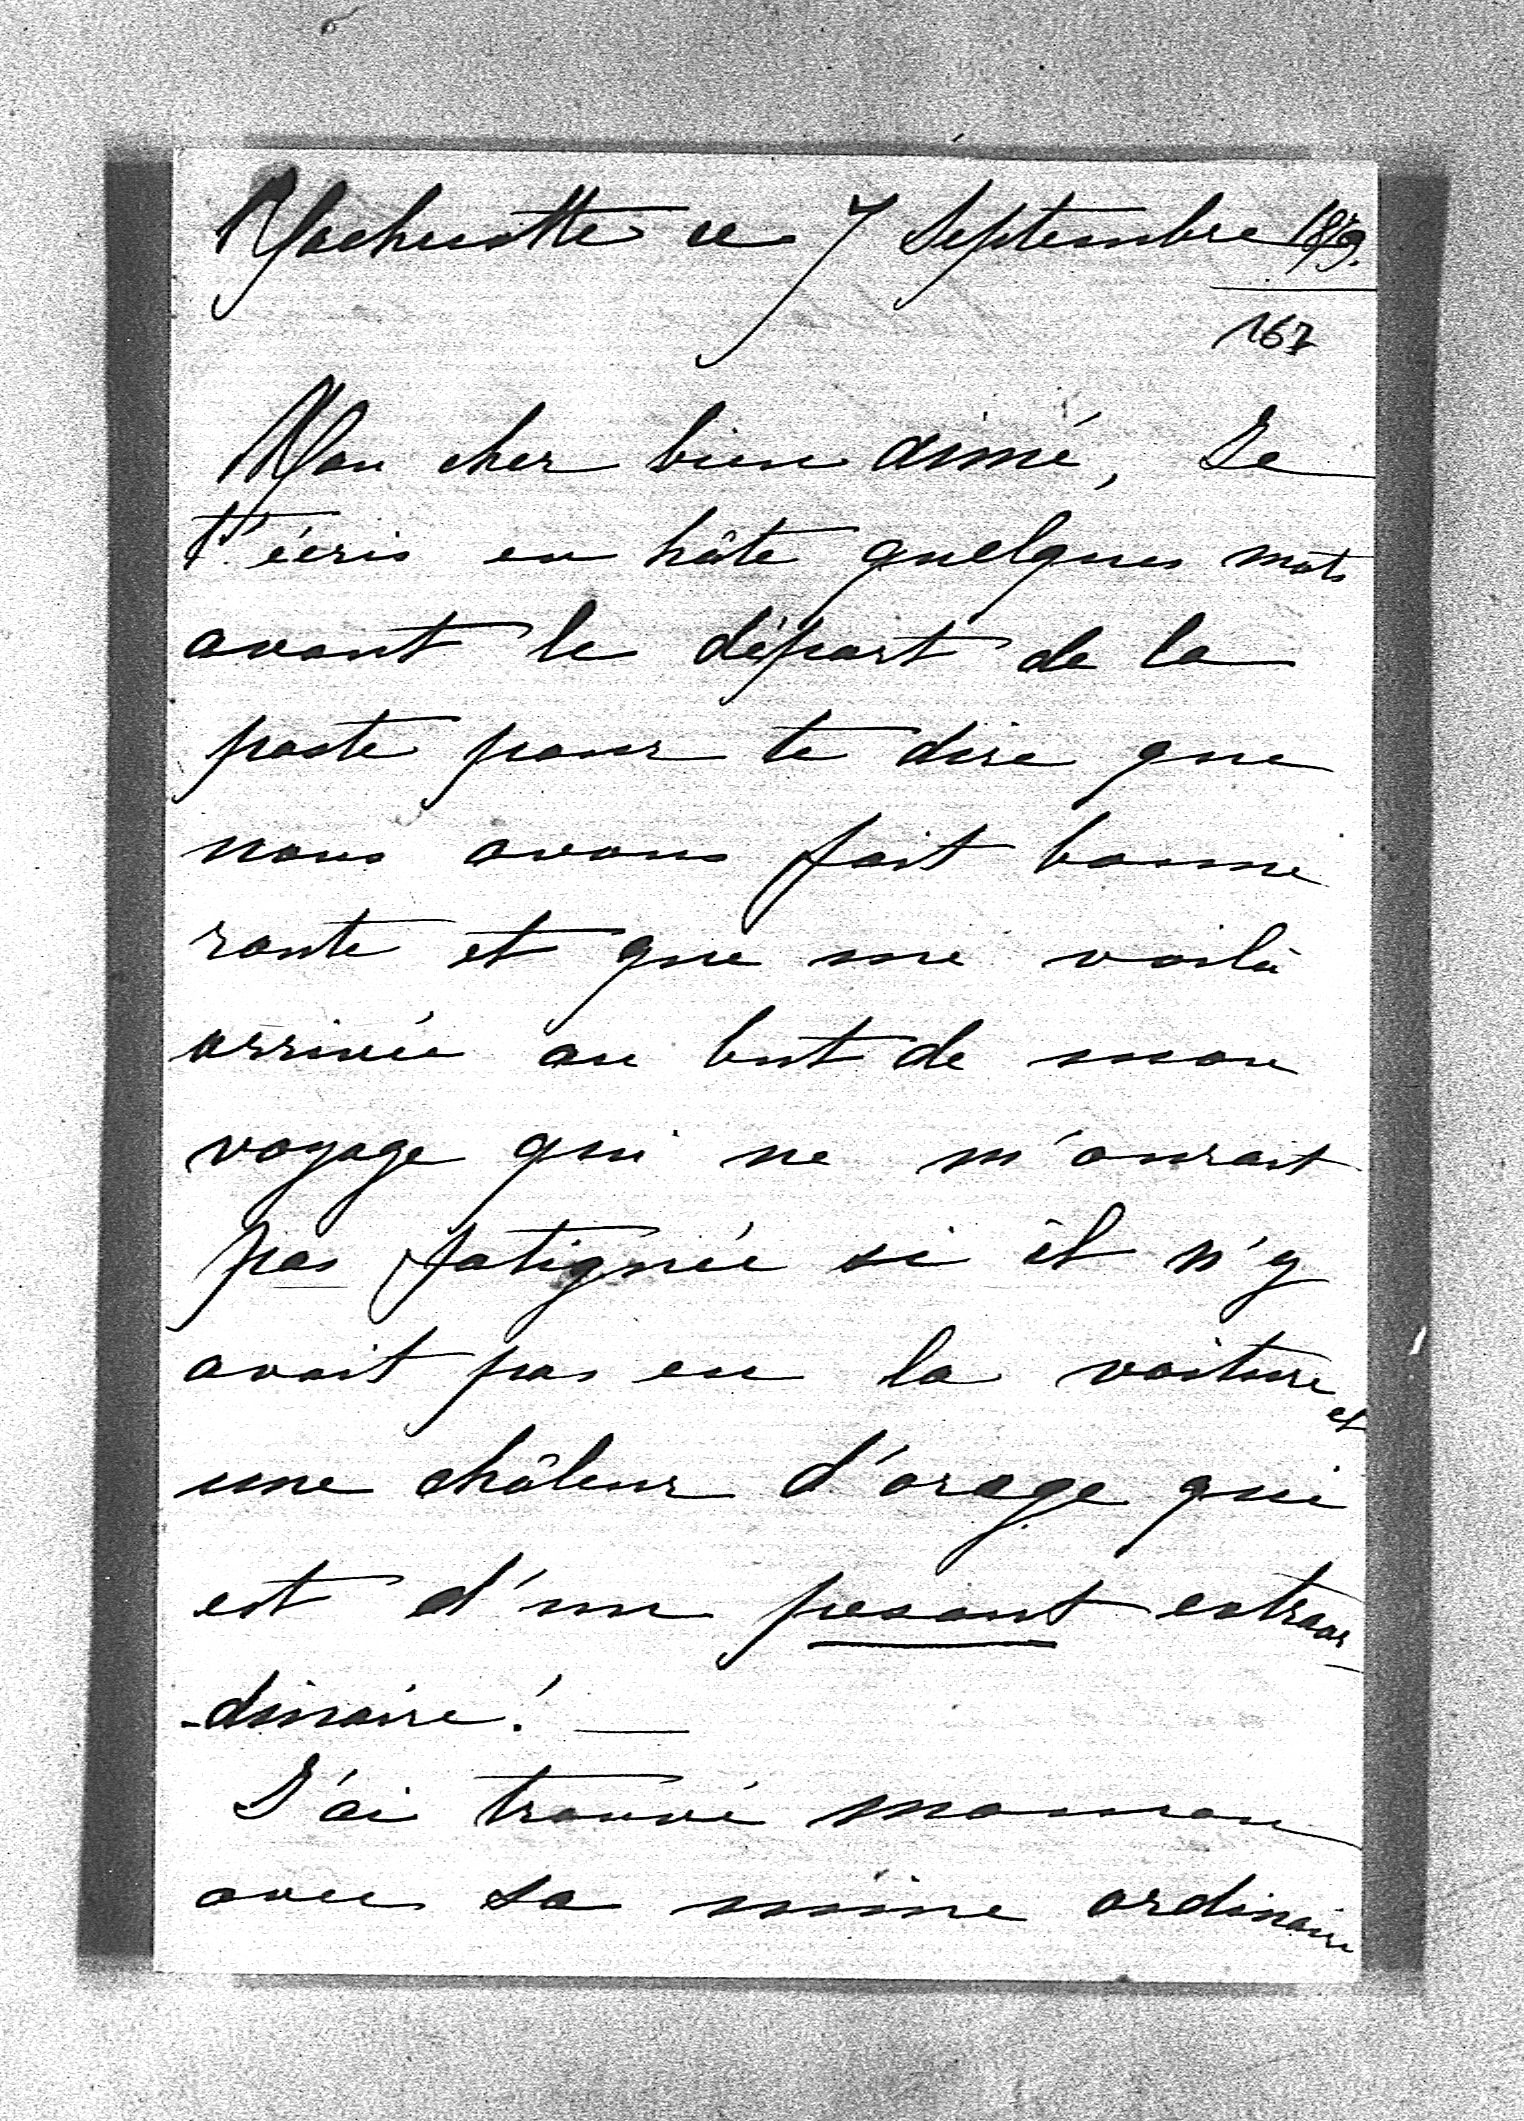 Machurotte ce 7 Septembre 1879.
167
Mon cher bien aimé, Je
t'écris en hâte quelques mots
avant le départ de la
poste pour te dire que
nous avons fait bonne
route et que me voilà
arrivée au but de mon
voyage qui ne m'aurait
pas fatiguée si il n'y
avait pas eu la voiture et
une châleur d'orage qui
est d'un pesant extraor
-dinaire! —
J'ai trouvé maman
avec sa mine ordinaire